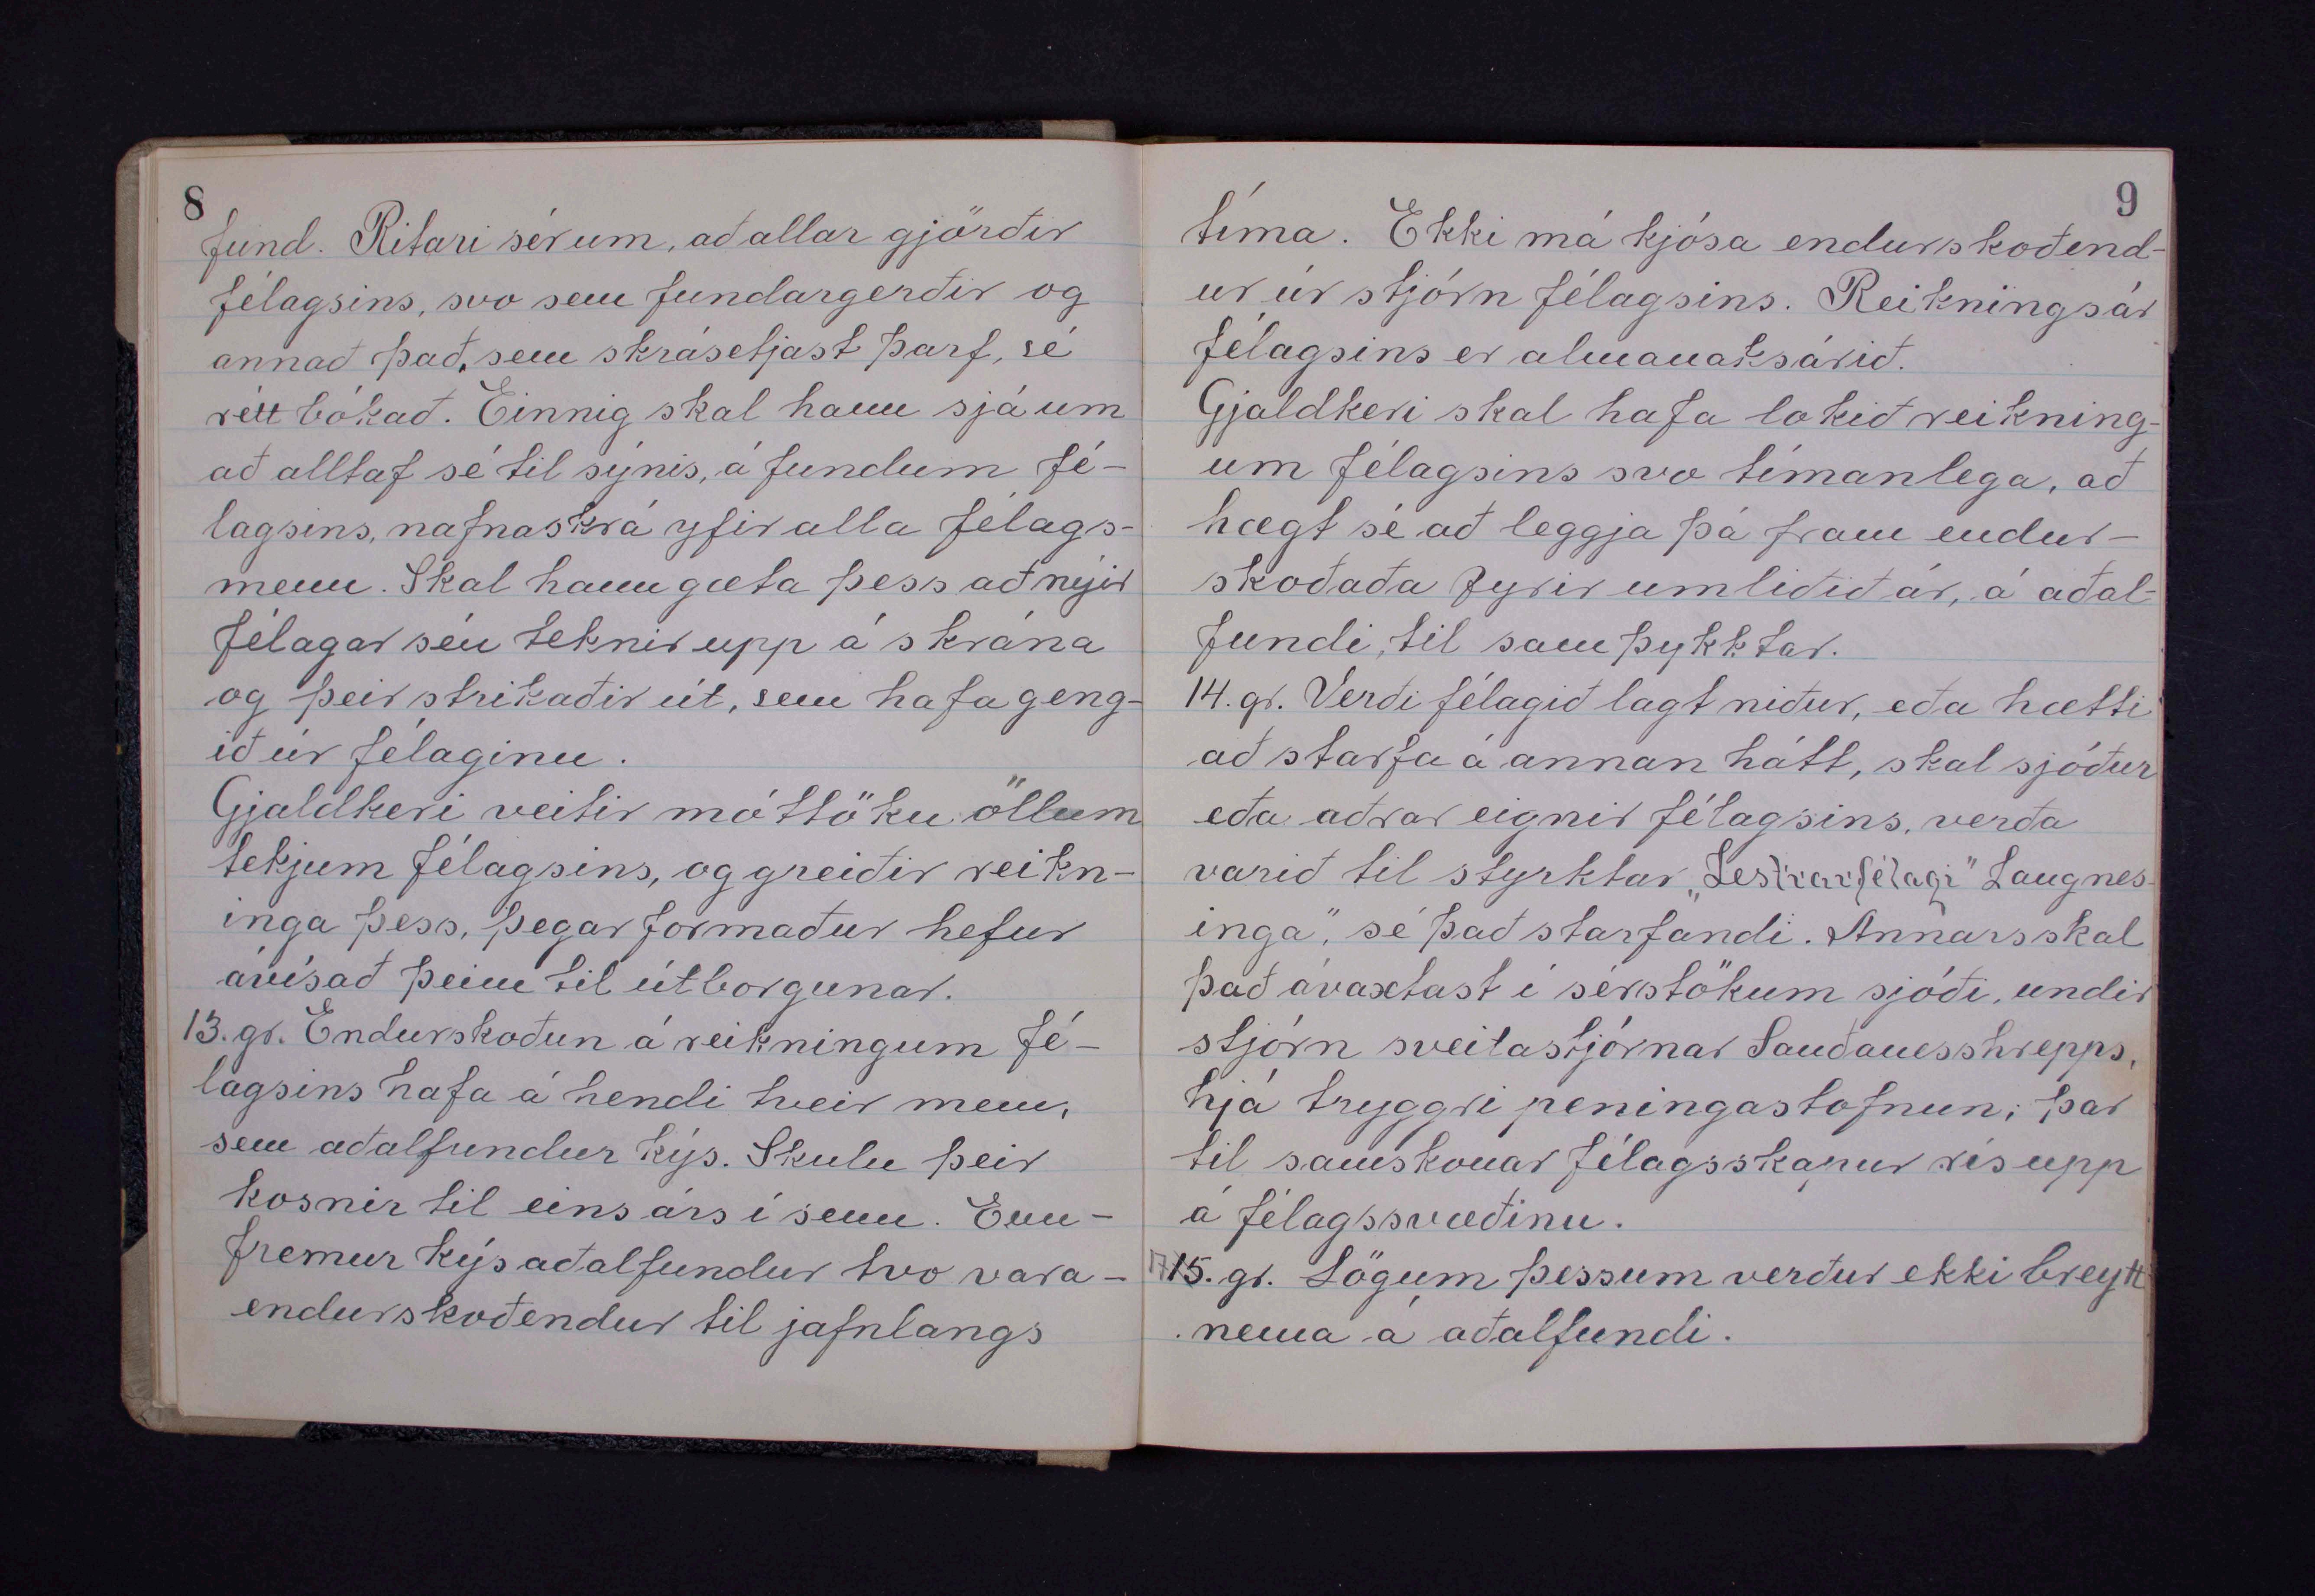 8
fund. Ritari sér um, að allar gjörðir
félagsins, svo sem fundargerðir og
annað það, sem skrásetjast þarf, sé
rétt bókað. Einnig skal hann sjá um
að alltaf sé til sýnis, á fundum fé-
lagsins, nafnaskrá yfir alla félags-
menn. Skal hann gæta þess að nýir
félagar séu teknir upp á skrána
og þeir strikaðir út, sem hafa geng-
ið úr félaginu.
Gjaldkeri veitir móttöku öllum
tekjum félagsins, og greiðir reikn-
inga þess, þegar formaður hefur
ávísað þeim til útborgunar.
13. gr. Endurskoðun á reikningum fé-
lagsins hafa á hendi tveir menn,
sem aðalfundur kýs. Skulu þeir
kosnir til eins árs í senn. Enn-
fremur kýs aðalfundur tvo vara-
endurskoðendur til jafnlangs
9
tíma. Ekki má kjósa endurskoðend-
ur úr stjórn félagsins. Reikningsár
félagsins er almanaksárið.
Gjaldkeri skal hafa lokið reikning-
um félagsins svo tímanlega, að
hægt sé að leggja þá fram endur-
skoðaða fyrir umliðið ár, á aðal-
fundi, til samþykktar.
14. gr. Verði félagið lagt niður, eða hætti
að starfa á annan hátt, skal sjóður
eða aðrar eignir félagsins, verða
varið til styrktar „Lestrarfélagi" Laugnes-
inga", sé það starfandi. Annars skal
það ávaxtast í sérstökum sjóði, undir
stjórn sveitastjórnar Sauðanesshrepps,
hjá tryggri peningastofnun; þar
til samskonar félagsskapur rís upp
á félagssvæðinu.
15. gr. Lögum þessum verður ekki breytt
nema á aðalfundi.